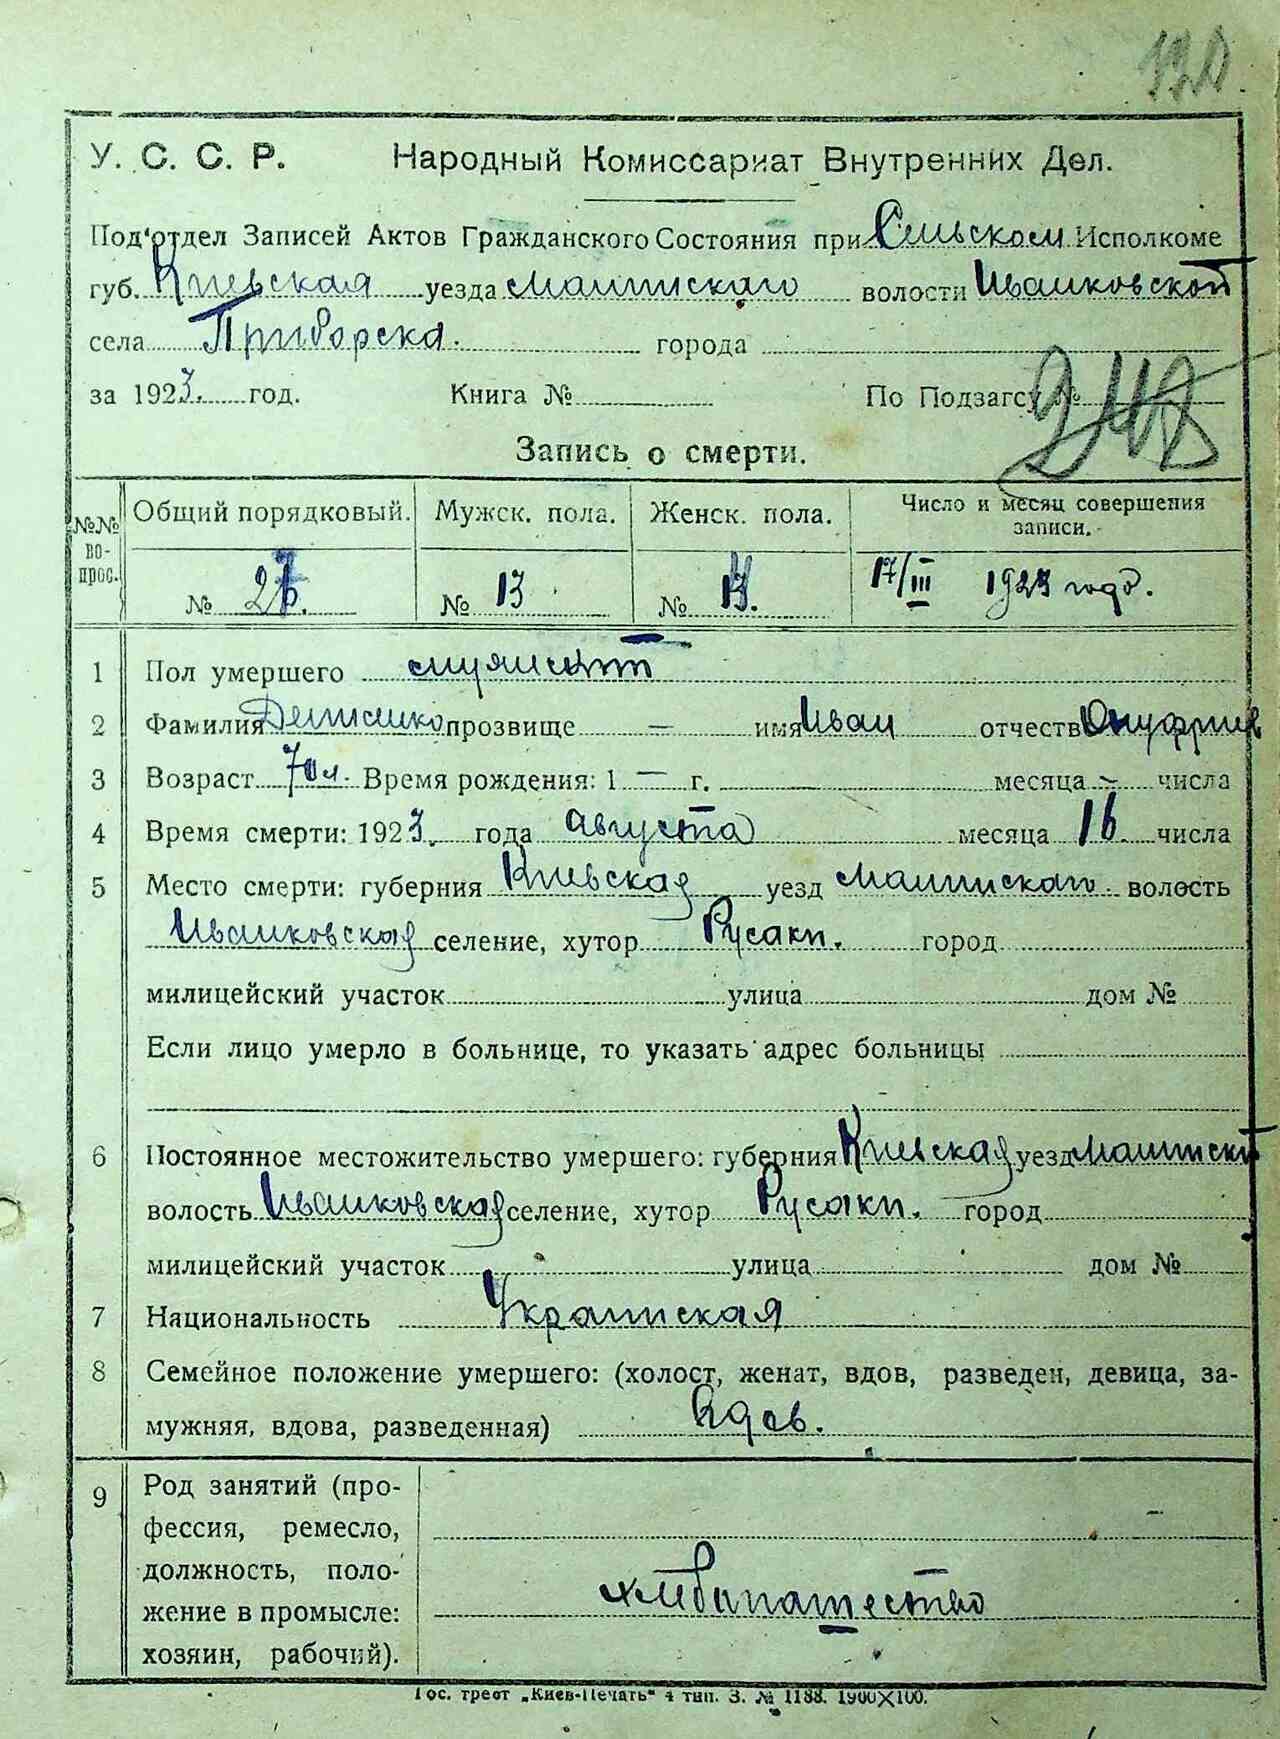 У. С. С. Р. Народный Комиссариат Внутренних Дел.
Под'отдел Записей Актов Гражданского Состояния при Сельском Исполкоме
губ. Киевская уезда Малинскаго волости Иванковской
села Приборска. города
за 1923. год. Книга № По Подзагсу №
Запись о смерти.
№№ вопрос. Общий порядковый. Мужск. пола. Женск. пола. Число и месяц совершения записи.
№ № 13 № 17/III 1923 года.
1 Пол умершего мужской
2 Фамилия прозвище — имя Иван отчество Онуфриев
3 Возраст 70 л. Время рождения: 1 — г. — месяца — числа
4 Время смерти: 1923. года августа месяца 16. числа
5 Место смерти: губерния Киевская уезд Малинскаго волость
Иванковская селение, хутор Русаки. город
милицейский участок улица дом №
Если лицо умерло в больнице, то указать адрес больницы
6 Постоянное местожительство умершего: губерния Киевская уезд Малинский
волость Иванковская селение, хутор Русаки. город
милицейский участок улица дом №
7 Национальность Украинская
8 Семейное положение умершего: (холост, женат, вдов, разведен, девица, за-
мужняя, вдова, разведенная) Вдов.
9 Род занятий (про-
фессия, ремесло,
должность, поло-
жение в промысле:
хозяин, рабочий).
хлебопашество
Гос. трест „Киев-Печать“ 4 тип. З. № 1188. 1900×100.